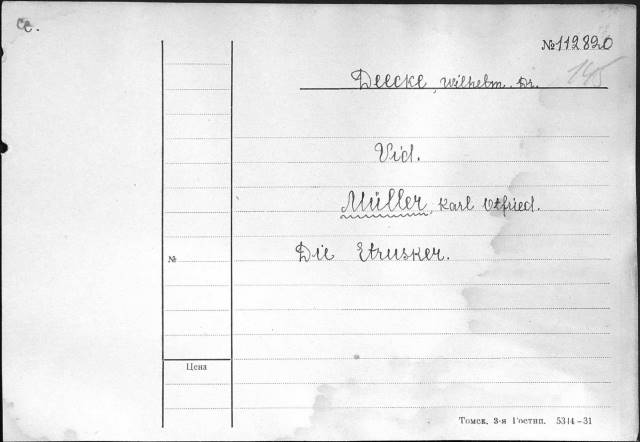 се.
№112820
145
Deecke, Wilhelm. Dr.
Vid.
Müller, Karl Otfried.
Die Etrusker.
№
Цена
Томск, 3-я Гостип. 5344-31